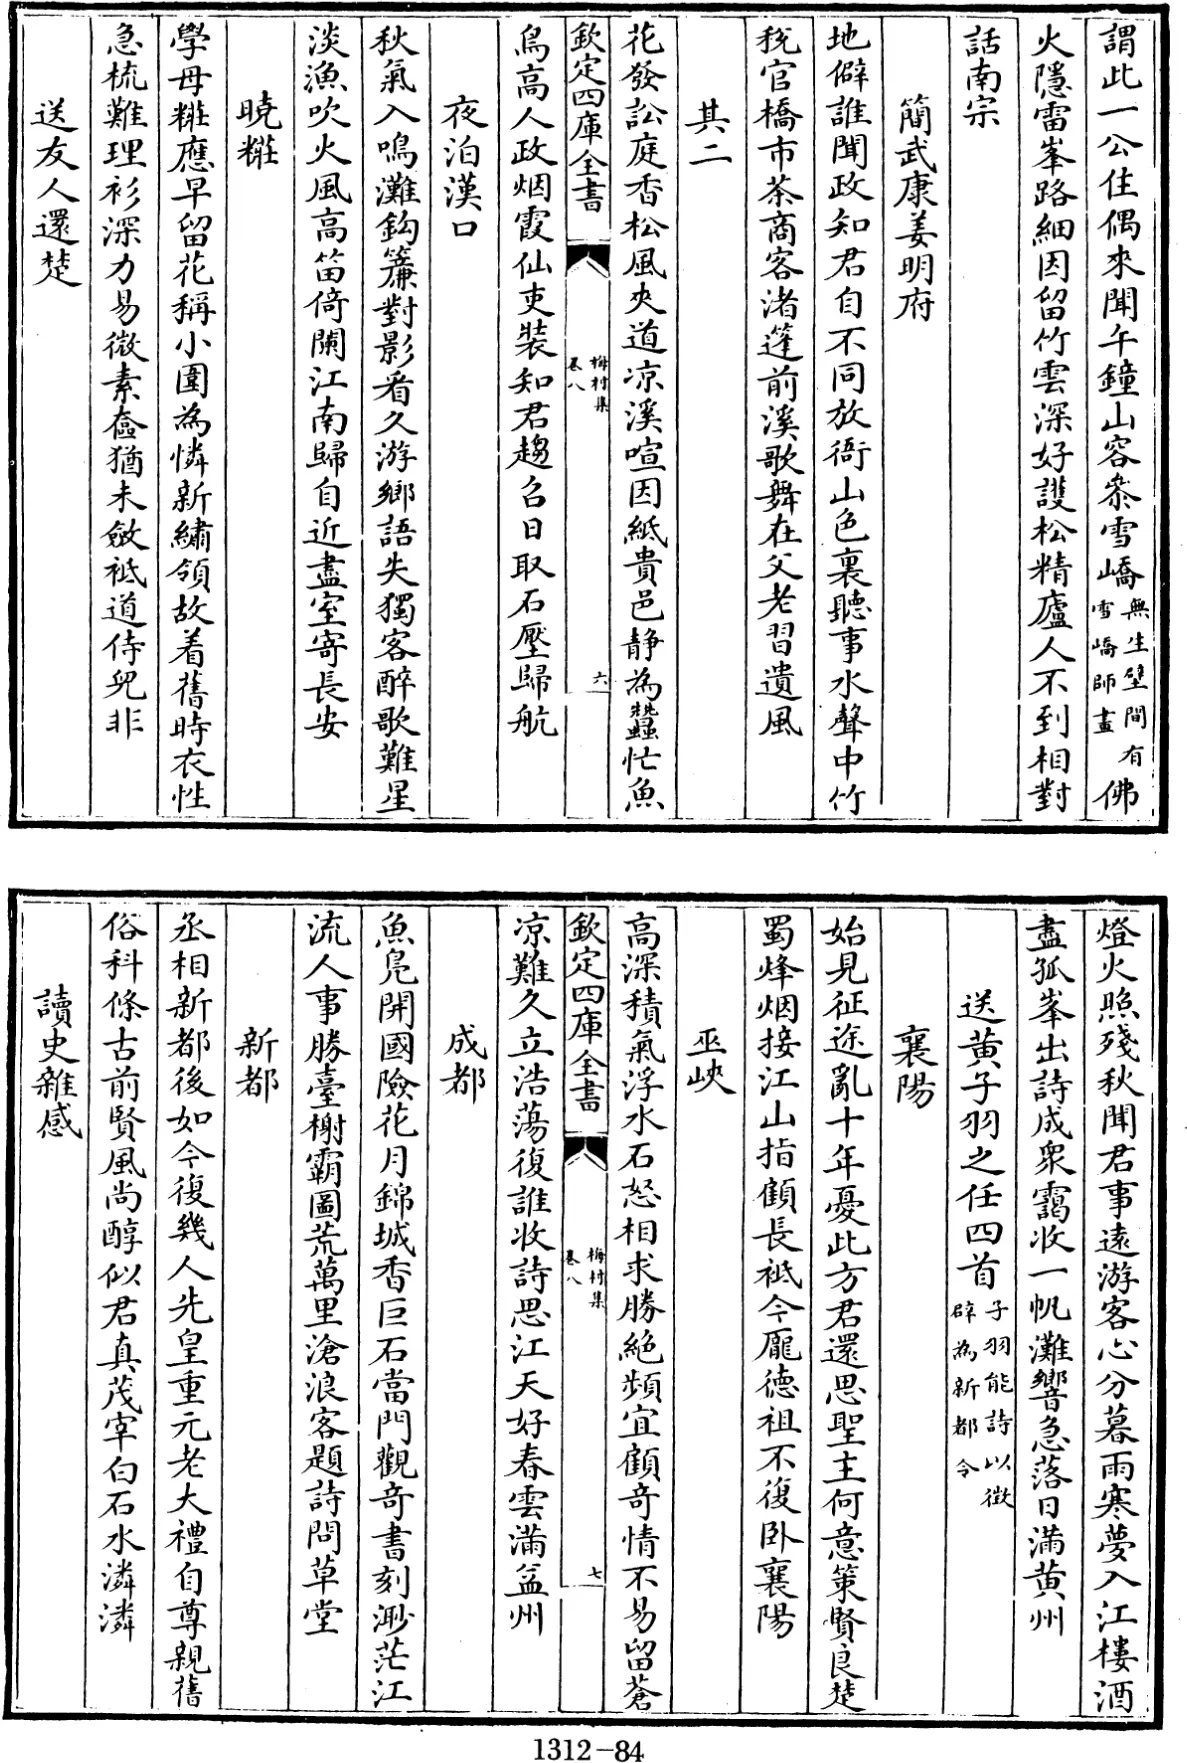 謂此一公住偶來聞午鐘山容叅雪嶠無生壁間有雪嶠師畫佛
火隱雷峯路細因留竹雲深好護松精廬人不到相對
話南宗
簡武康姜明府
地僻誰聞政知君自不同放衙山色裏聽事水聲中竹
稅官橋市茶商客渚篷前溪歌舞在父老習遺風
其二
花發訟庭香松風夾道凉溪喧因紙貴邑静為蠶忙魚
欽定四庫全書
梅村集
卷八
六
鳥高人政烟霞仙吏装知君趨召日取石壓歸航
夜泊漢口
秋氣入鳴灘鈎簾對影看久游鄉語失獨客醉歌難星
淡漁吹火風高笛倚闌江南歸自近盡室寄長安
曉糚
學母糚應早留花稱小圍為憐新繡領故着舊時衣性
急梳難理衫深力易微素奩猶未斂祗道侍兒非
送友人還楚
燈火照殘秋聞君事遠游客心分暮雨寒夢入江樓酒
盡孤峯出詩成衆靄收一帆灘響急落日滿黄州
送黄子羽之任四首子羽能詩以徴辟為新都令
襄陽
始見征途亂十年憂此方君還思聖主何意策賢良楚
蜀烽烟接江山指顧長祗今龐德祖不復卧襄陽
巫峽
高深積氣浮水石怒相求勝絶頻宜顧奇情不易留蒼
欽定四庫全書
梅村集
卷八
七
凉難久立浩蕩復誰收詩思江天好春雲滿益州
成都
魚鳧開國險花月錦城香巨石當門觀奇書刻渺茫江
流人事勝臺榭霸圖荒萬里滄浪客題詩問草堂
新都
丞相新都後如今復幾人先皇重元老大禮自尊親舊
俗科條古前賢風尚醇似君真茂宰白石水潾潾
讀史雜感
1312-84